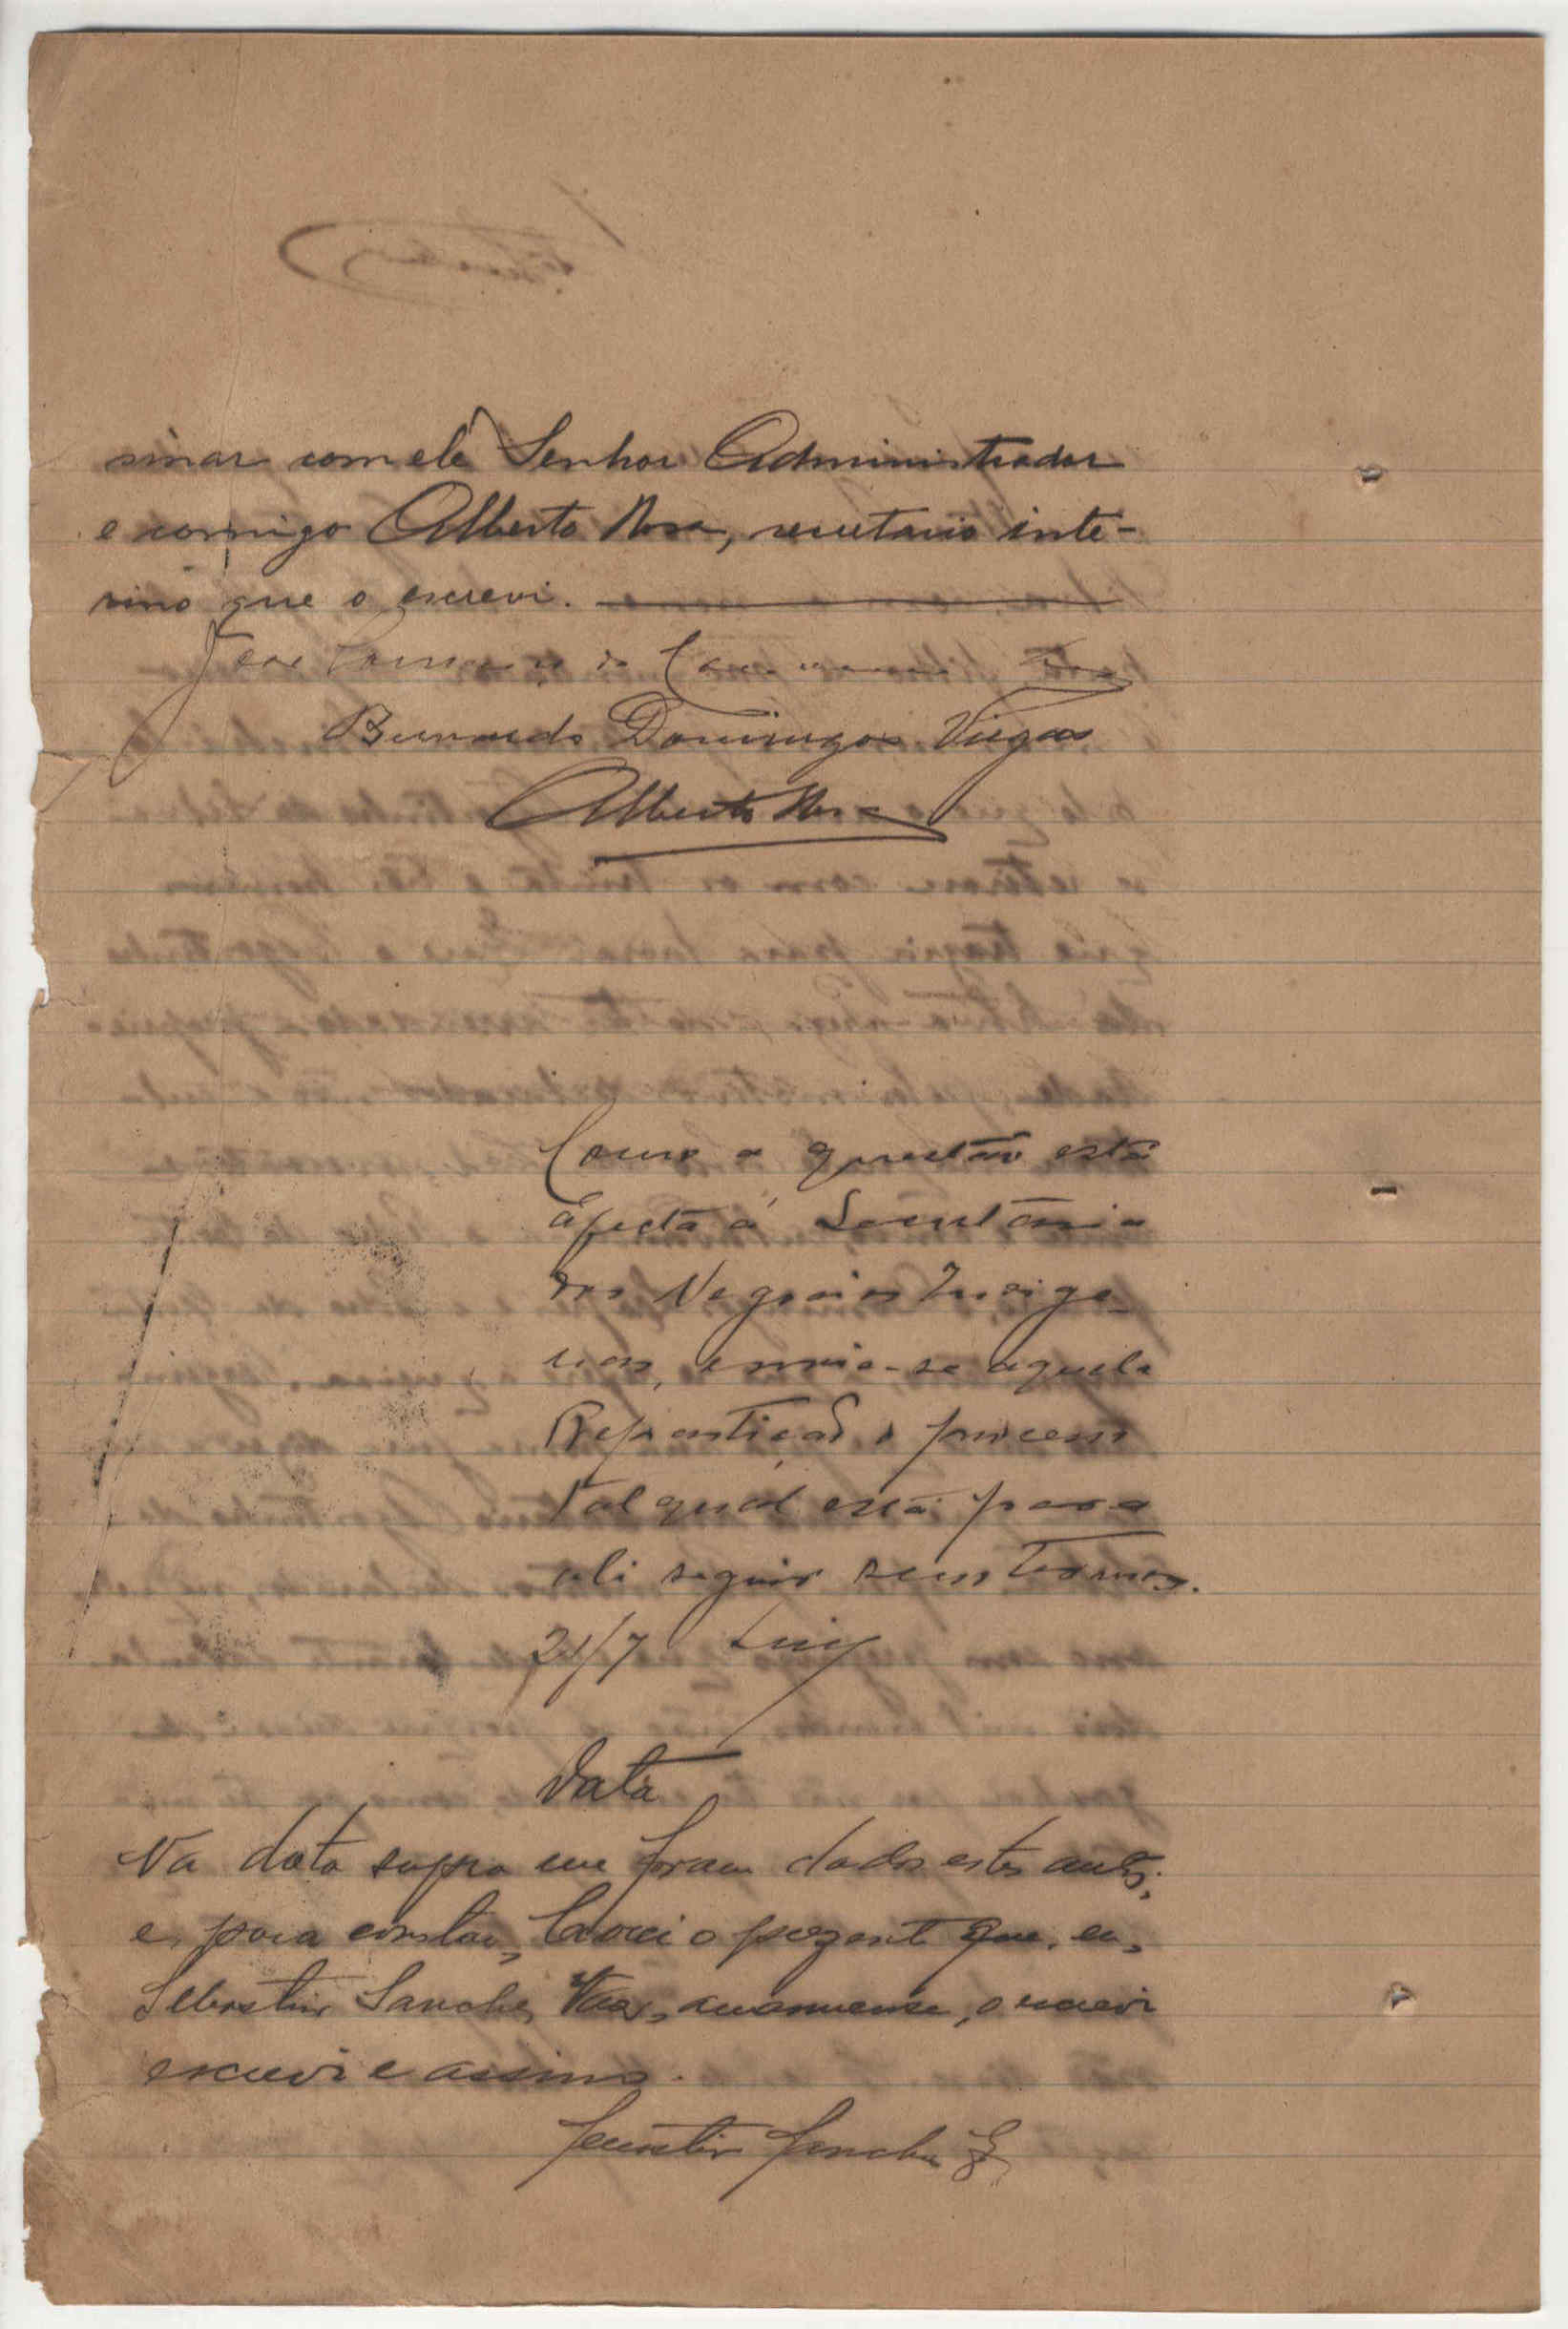 sinar com ele Senhor Administrador
e comigo Alberto Rosa, secretario inte-
rino que o escrevi.
Bernardo Domingos Viegas
Alberto Rosa
Como a questão está
afecta á Secretaria
dos Negocios Indige-
nas, envie-se aquela
Repartição o processo
tal qual está para
ali seguir seus termos.
21/7
Data
Na data supra me foram dados estes autos,
e, para constar, lavrei o prezente que, eu,
Sebastião Sanches Vaz, amanuense, o escrevi
escrevi e assino.